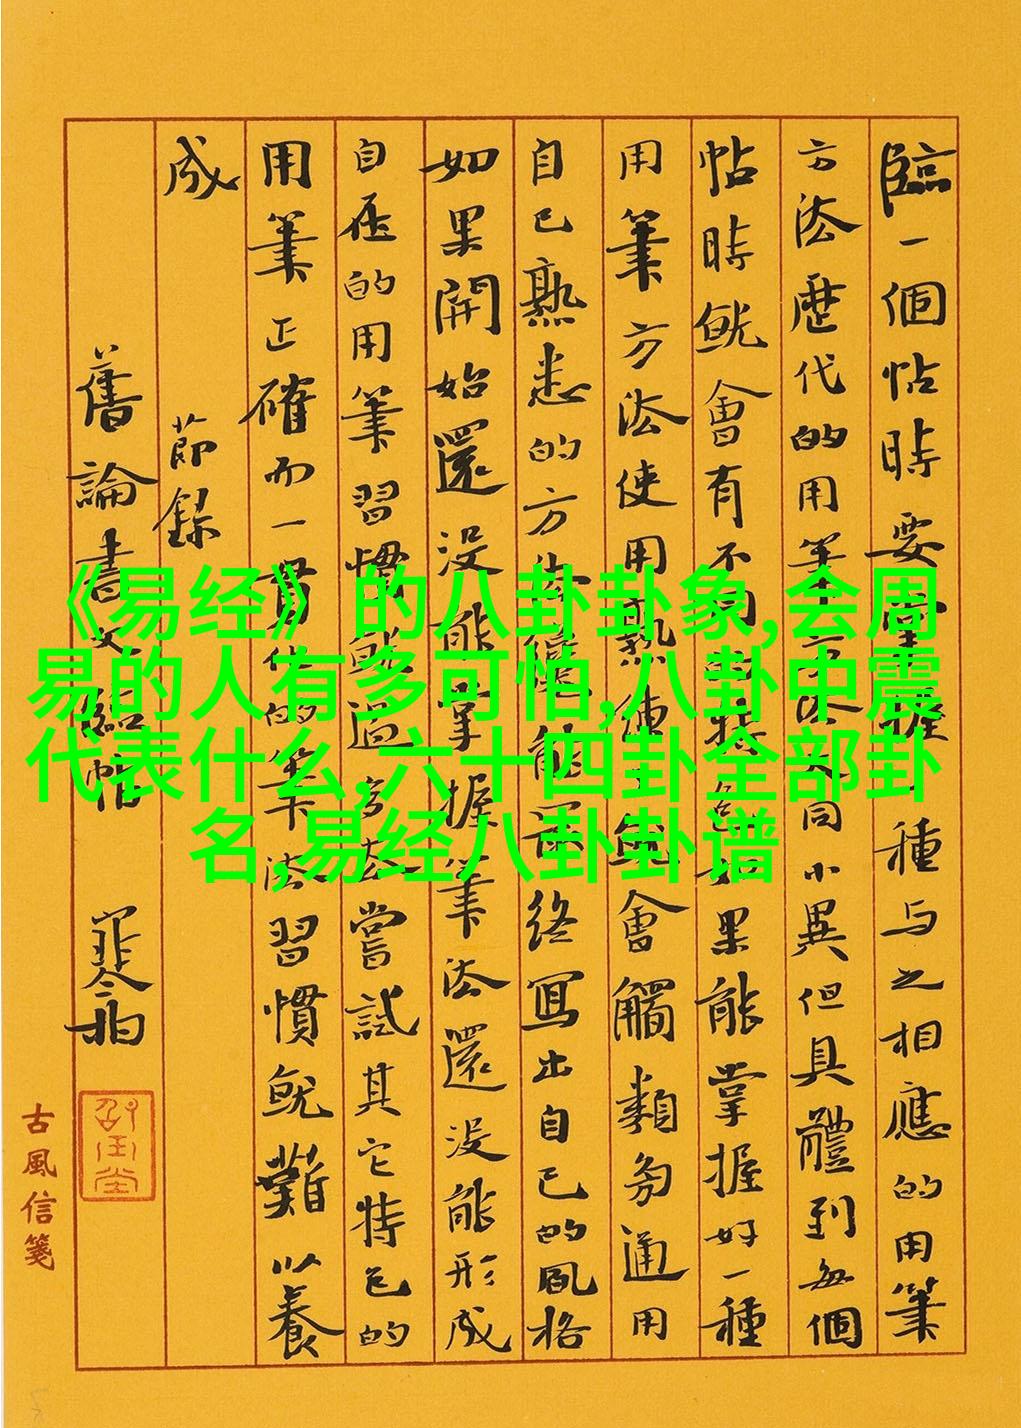 臨一個帖時要掌握一種与之相應的用筆
方法歷代的用筆方法大同小異但具體到每個
帖時就會有不同特色如果能掌握好一種
用筆方法使用熟練了就會觸類旁通用
自己熟悉的方法能終寫出自己的風格
如果開始還没能掌握筆法還没能形成
自在的用筆習慣就過多去嘗試其它特色的
用筆正確而一貫的筆法習慣就難以養
成 節錄
舊論書文臨帖
古風信箋
《易经》的八卦卦象,会周
易的人有多可怕,八卦中震
代表什么,六十四卦全部卦
名,易经八卦卦谱